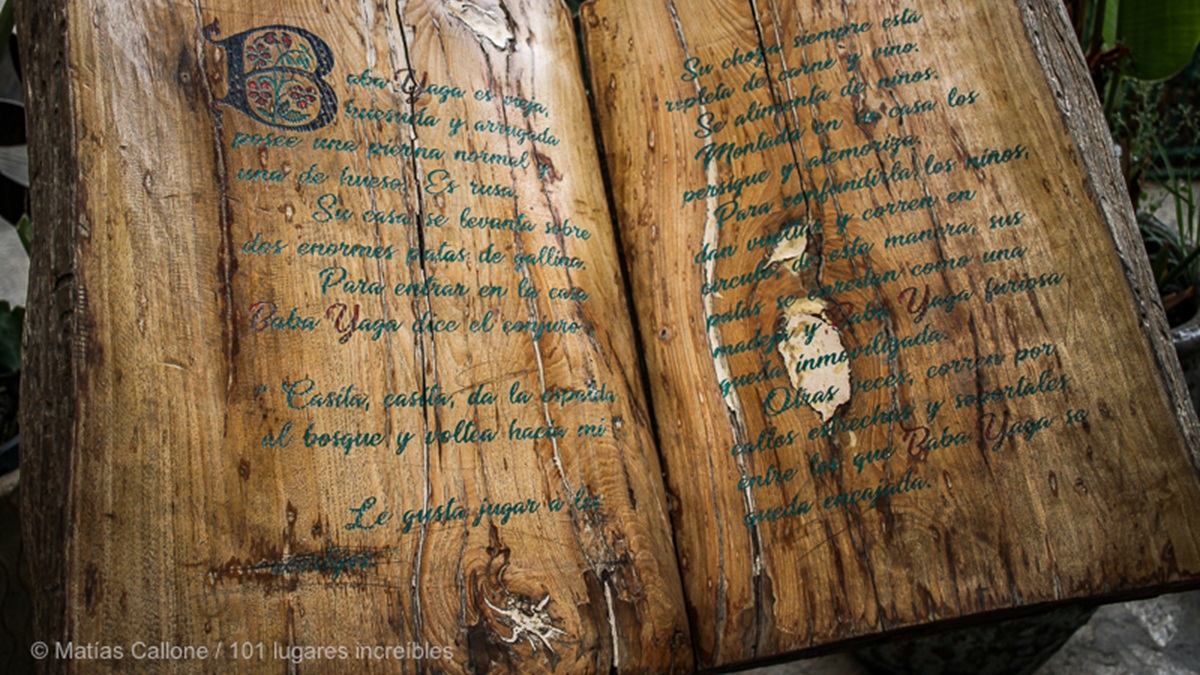 Baba Yaga es vieja,
huesuda y arrugada
posee una pierna normal y
una de hueso. Es rusa.
Su casa se levanta sobre
dos enormes patas de gallina.
Para entrar en la casa
Baba Yaga dice el conjuro
"Casita, casita, da la espalda
al bosque y voltea hacia mi
Le gusta jugar a los
Su choza siempre está
repleta de carne y vino.
Se alimenta de niños.
Montada en su casa los
persigue y atemoriza.
Para confundirla, los niños,
dan vueltas y corren en
círculo de esta manera, sus
patas se enredan como una
madeja y Baba Yaga furiosa
queda inmovilizada.
Otras veces, corren por
calles estrechas y soportales
entre los que Baba Yaga se
queda encajada.
© Matías Callone / 101 lugares increíbles